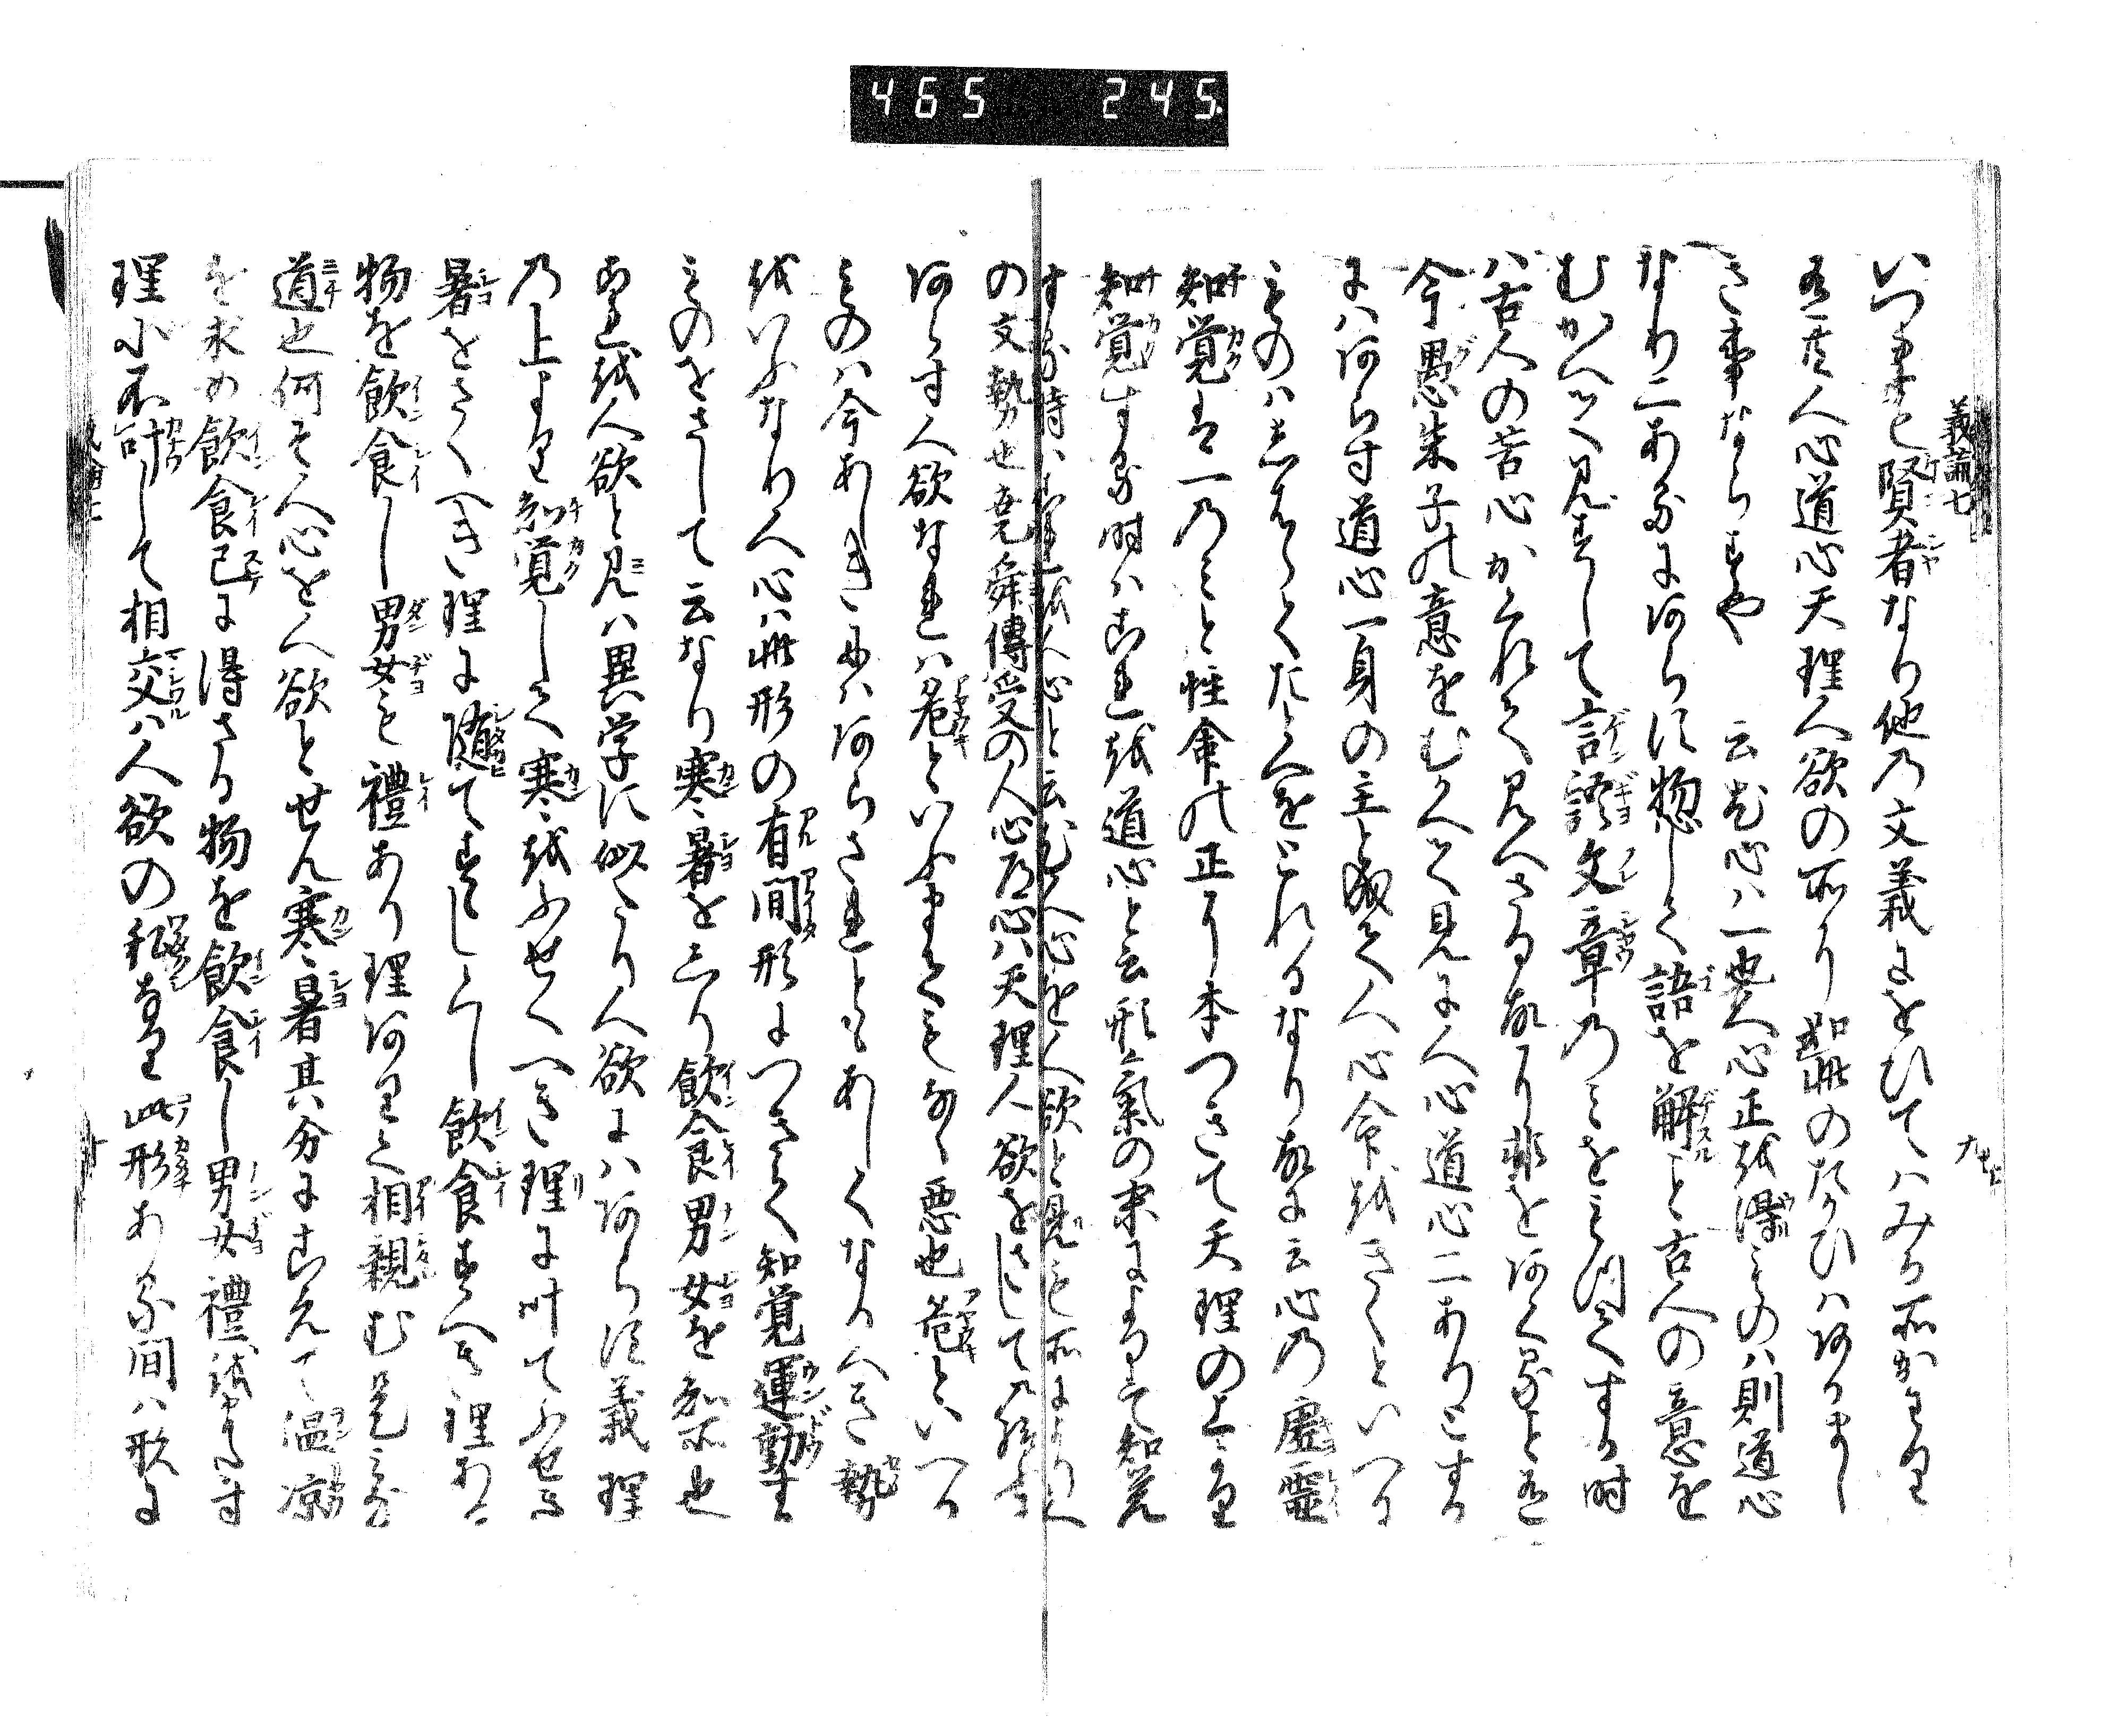 465 245
義論七
いつれも賢者なり他の文義にをひてハみる所かはれり
古人心道心天理人欲の所より如此のたかひハ何るまし
き事ならすや 云尤心ハ一也人心正を得るものハ則道心
なり二あるに何らす惣して語を解こと古人の意を
むかへて見すして言語文章のミをミ聞てする時
ハ古人の苦心かくれて見へさる故に非を何くると
今愚朱子の意をむかへて見に人心道心二ありとする
にハ何らす道心一身の主と成て人心命をきくといへる
ものハしはらくたとへをとれるなり故に云心の虚霊
知覚は一のミと性命の正に本つきて天理の上より
知覚する時ハこれを道心と云形氣の末によりて知覚
する時ハこれを人心と云尤人心を人欲と見も所によりて
の文勢也堯舜傳受の人心道心ハ天理人欲をさして
何らす人欲なれハ危といふまてもなく悪也危といへる
ものハ今あしきにハ何らされともあしくなるへき勢
をいふなり人心ハ此形の有間形につきて知覚運動する
ものをさして云なり寒暑をしり飲食男女を知所也
これを人欲と見ハ異学に似たり人欲にハ何らす義理
の上より知覚して寒をふせくへき理に叶てふせき
暑をさくへき理に随てすゝし飲食すへき理ある
物を飲食し男女も禮あり理何りて相親む是みな
道也何そ人心を人欲とせん寒暑其分にこえて温凉
を求め飲食己に得さる物を飲食し男女禮によらす
理に不叶して相交ハ人欲の私なり此形ある間ハ形に